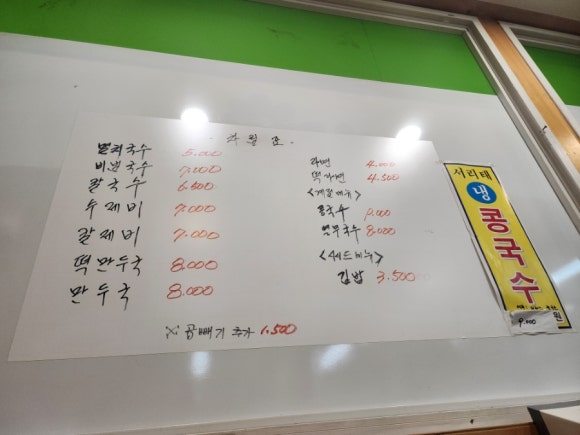 - 차림표 -
멸치국수 5.000
비빔국수 7.000
칼국수 6.500
수제비 7.000
칼제비 7.000
떡만두국 8.000
만두국 8.000
라면 4.000
떡라면 4.500
<계절메뉴>
콩국수 9.000
열무국수 8.000
<사이드메뉴>
김밥 3.500
※ 곱빼기 추가 1.500
서리태
냉
콩국수
원
9.000